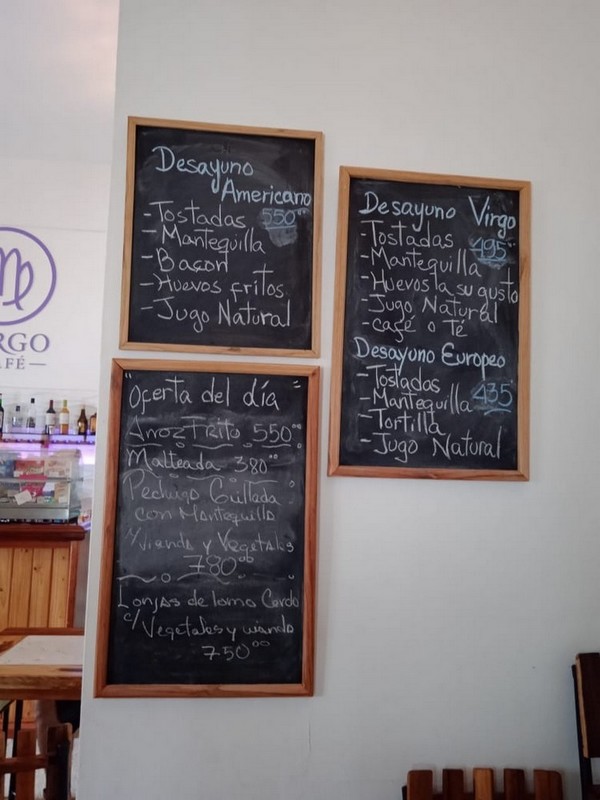 Desayuno
Americano
-Tostadas 550⁰⁰
-Mantequilla
-Bacon
-Huevos fritos
-Jugo Natural
"Oferta del día"
Arroz Frito 550⁰⁰
Malteada 380⁰⁰
Pechuga Grillada
con Mantequilla
y/vianda y Vegetales
780⁰⁰
Lonjas de lomo Cerdo
c/Vegetales y vianda
750⁰⁰
Desayuno Virgo
-Tostadas 495⁰⁰
-Mantequilla
-Huevos la su gusto
-Jugo Natural
-café o Té
Desayuno Europeo
-Tostadas
-Mantequilla 435
-Tortilla
-Jugo Natural
RGO
AFÉ